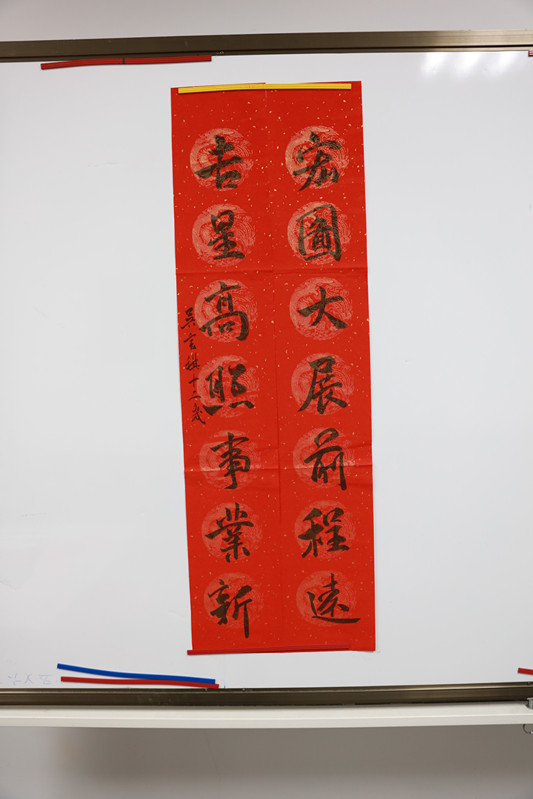 宏圖大展前程遠
吉星高照事業新
吴言祺十二歲